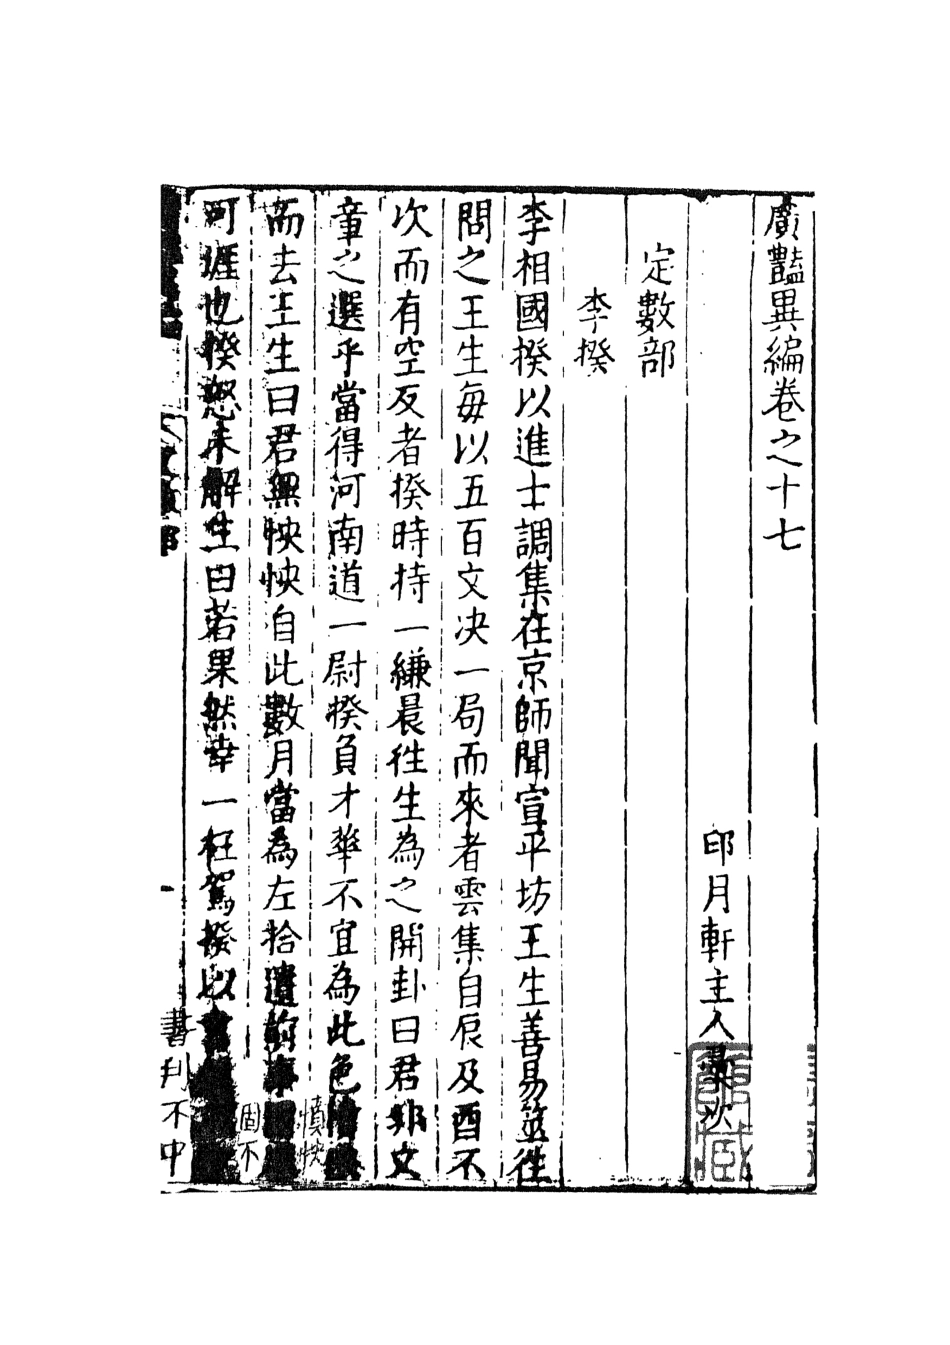 廣豔異編卷之十七
印月軒主人彙次
定數部
李揆
李相國揆以進士調集在京師聞宣平坊王生善易筮往
問之王生每以五百文决一局而來者雲集自辰及酉不
次而有空反者揆時持一縑晨往生為之開卦曰君非文
章之選乎當得河南道一尉揆負才華不宜為此色
憤怏
而去王生曰君無怏怏自此數月當為左拾遺前事
固不
可涯也揆怒未解生曰若果然幸一枉駕揆以書
書判不中